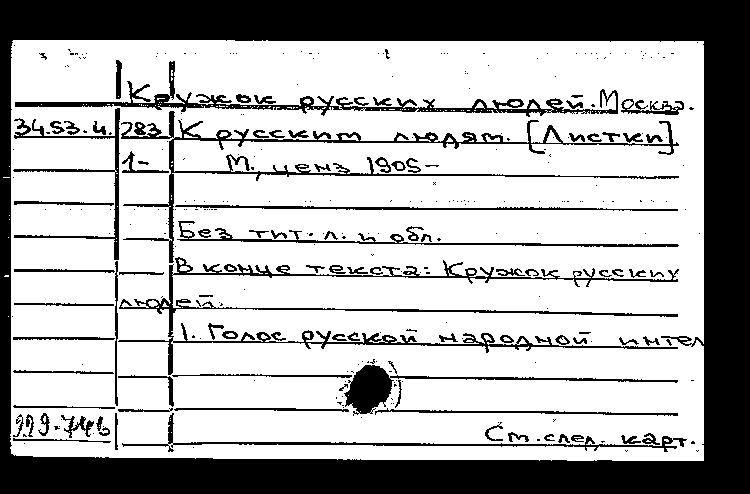 Кружок русских людей. Москва.
34.53.4. 283 К русским людям. [Листки].
1- М., ценз 1905-
Без тит. л. и обл.
В конце текста: Кружок русских
людей.
1. Голос русской народной интел
См. след. карт.